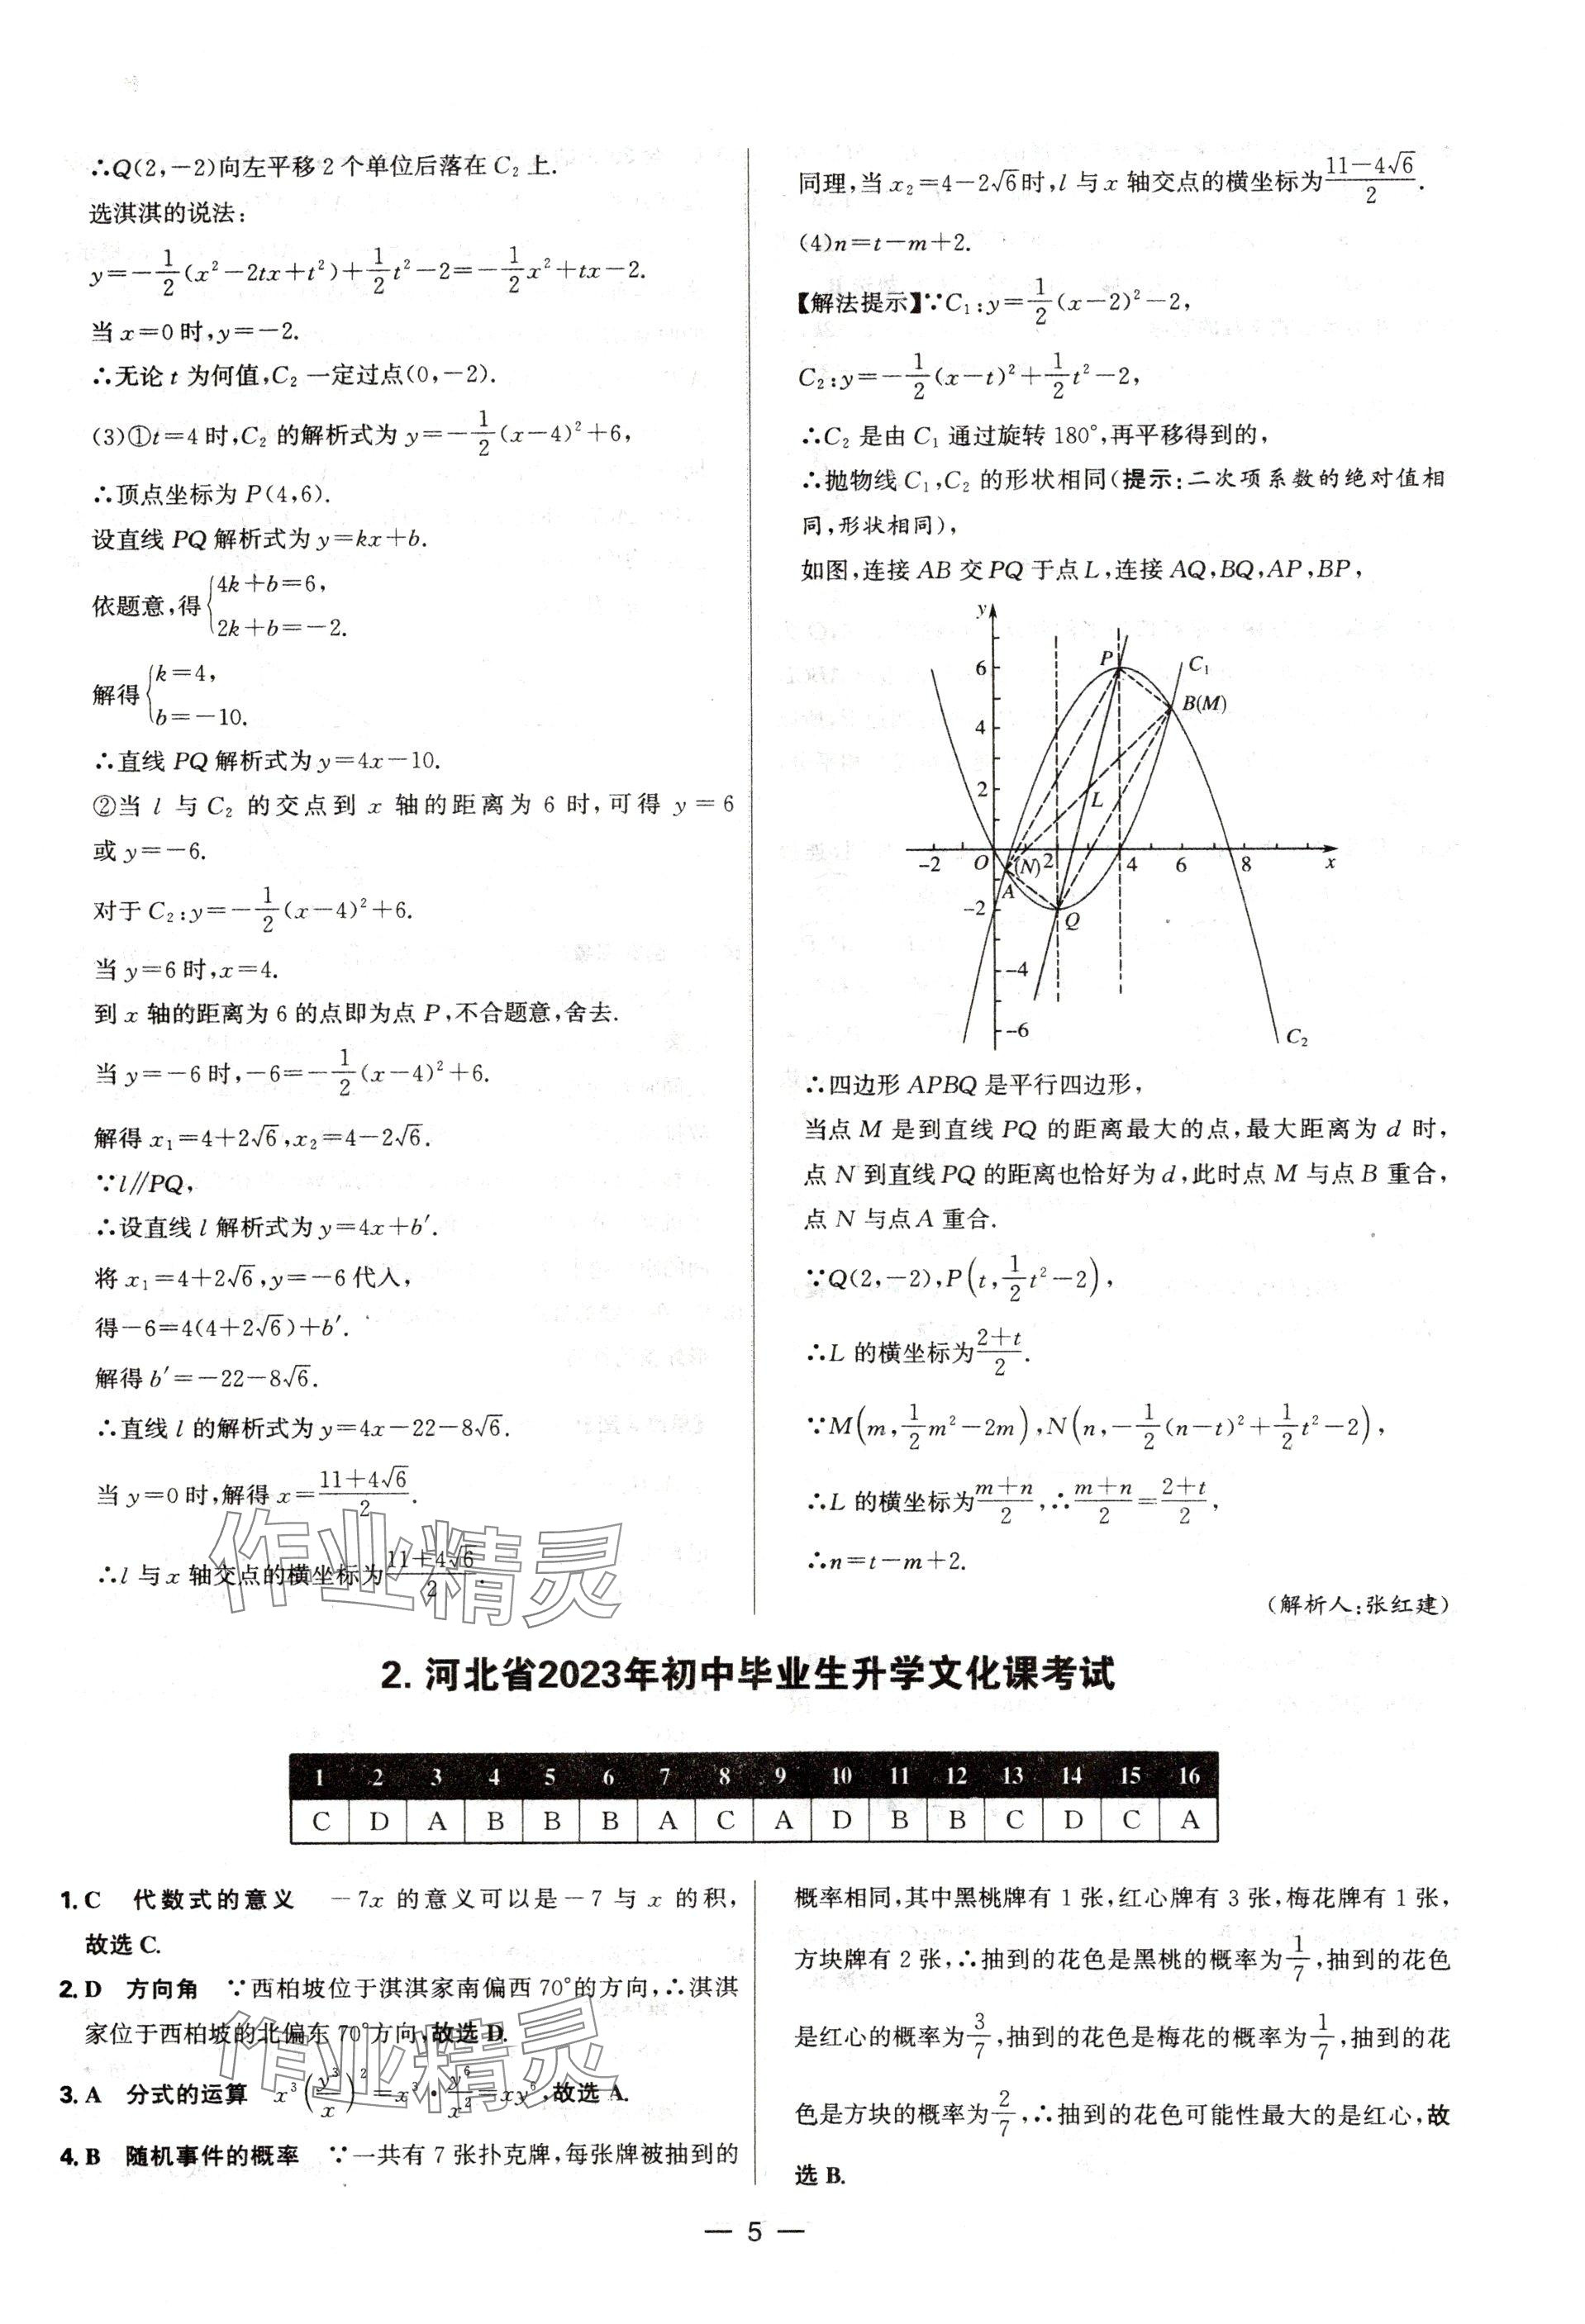 ∴Q(2,-2)向左平移2个单位后落在C₂上.
选淇淇的说法:
y=-1/2(x²-2tx+t²)+1/2t²-2=-1/2x²+tx-2.
当x=0时,y=-2.
∴无论t为何值,C₂一定过点(0,-2).
(3)①t=4时,C₂的解析式为y=-1/2(x-4)²+6,
∴顶点坐标为P(4,6).
设直线PQ解析式为y=kx+b.
依题意,得{4k+b=6,
2k+b=-2.
解得{k=4,
b=-10.
∴直线PQ解析式为y=4x-10.
②当l与C₂的交点到x轴的距离为6时,可得y=6
或y=-6.
对于C₂:y=-1/2(x-4)²+6.
当y=6时,x=4.
到x轴的距离为6的点即为点P,不合题意,舍去.
当y=-6时,-6=-1/2(x-4)²+6.
解得x₁=4+2√6,x₂=4-2√6.
∵l∥PQ,
∴设直线l解析式为y=4x+b′.
将x₁=4+2√6,y=-6代入,
得-6=4(4+2√6)+b′.
解得b′=-22-8√6.
∴直线l的解析式为y=4x-22-8√6.
当y=0时,解得x=(11+4√6)/2.
∴l与x轴交点的横坐标为(11+4√6)/2.
同理,当x₂=4-2√6时,l与x轴交点的横坐标为(11-4√6)/2.
(4)n=t-m+2.
【解法提示】∵C₁:y=1/2(x-2)²-2,
C₂:y=-1/2(x-t)²+1/2t²-2,
∴C₂是由C₁通过旋转180°,再平移得到的,
∴抛物线C₁,C₂的形状相同(提示:二次项系数的绝对值相
同,形状相同),
如图,连接AB交PQ于点L,连接AQ,BQ,AP,BP,
y
P
6
C₁
B(M)
4
2
L
-2 O (N) 2 4 6 8 x
A
-2
Q
-4
-6
C₂
∴四边形APBQ是平行四边形,
当点M是到直线PQ的距离最大的点,最大距离为d时,
点N到直线PQ的距离也恰好为d,此时点M与点B重合,
点N与点A重合.
∵Q(2,-2),P(t,1/2t²-2),
∴L的横坐标为(2+t)/2.
∵M(m,1/2m²-2m),N(n,-1/2(n-t)²+1/2t²-2),
∴L的横坐标为(m+n)/2,∴(m+n)/2=(2+t)/2,
∴n=t-m+2.
(解析人:张红建)
作业精灵
2. 河北省2023年初中毕业生升学文化课考试
1 2 3 4 5 6 7 8 9 10 11 12 13 14 15 16
C D A B B B A C A D B B C D C A
1. C 代数式的意义 -7x的意义可以是-7与x的积,
故选C.
2. D 方向角 ∵西柏坡位于淇淇家南偏西70°的方向,∴淇淇
家位于西柏坡的北偏东70°方向,故选D.
3. A 分式的运算 x³(y³/x)²=x³·y⁶/x²=xy⁶,故选A.
4. B 随机事件的概率 ∵一共有7张扑克牌,每张牌被抽到的
作业精灵
概率相同,其中黑桃牌有1张,红心牌有3张,梅花牌有1张,
方块牌有2张,∴抽到的花色是黑桃的概率为1/7,抽到的花色
是红心的概率为3/7,抽到的花色是梅花的概率为1/7,抽到的花
色是方块的概率为2/7,∴抽到的花色可能性最大的是红心,故
选B.
— 5 —